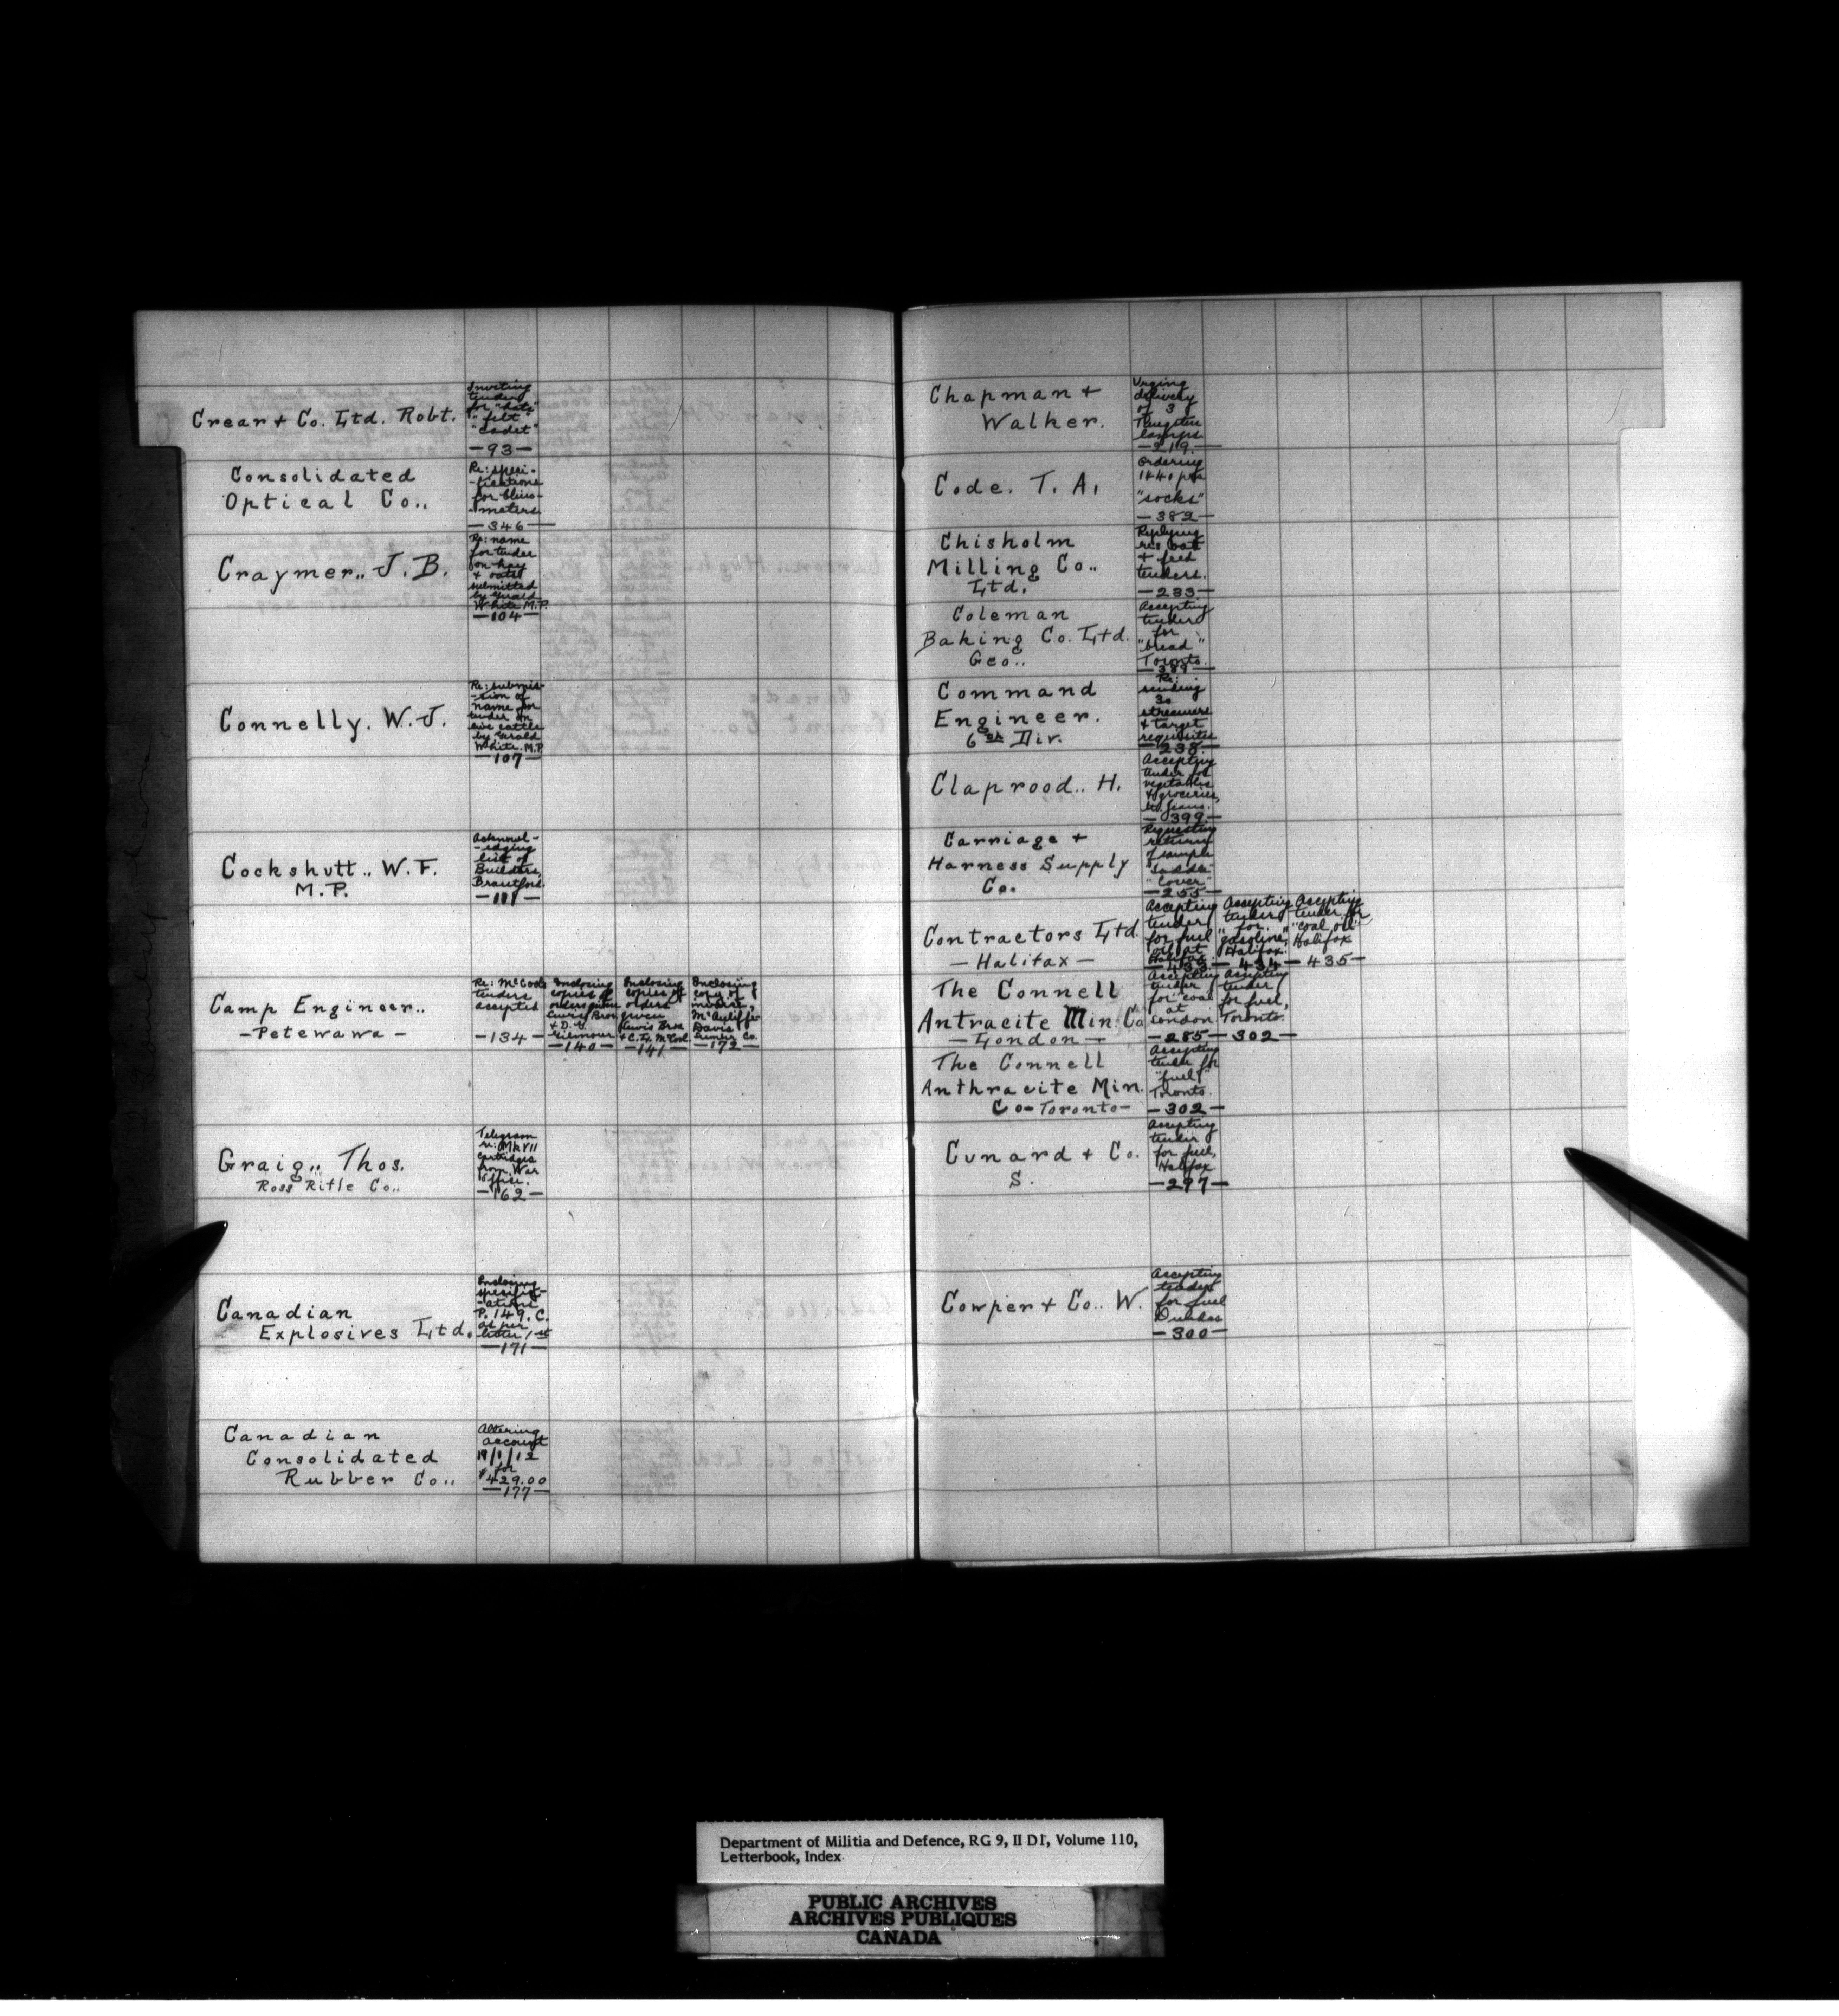 Crear + Co. Ltd. Robt.
Inviting
tender
for "hats"
"felt"
"cadet"
—93—
Consolidated
Optical Co..
Re: speci-
-fications
for clino-
-meters
—346—
Craymer.. J. B.
Re: name
for tender
on hay
+ oats
submitted
by Gerald
White M.P.
—104—
Connelly. W. J.
Re: submis-
-sion of
name for
tender on
live cattle
by Gerald
White. M.P.
—107—
Cockshutt.. W. F.
M. P.
Acknowl-
-edging
list of
Builders,
Brantford.
—111—
Camp Engineer..
—Petewawa—
Re: McCool's
tenders
accepted
—134—
Enclosing
copies of
orders given
Lewis Bros
+ D. C.
Gilmour
—140—
Enclosing
copies of
orders
given
Lewis Bros
+ C. L. McCool
—141—
Enclosing
copy of
invoice,
McAuliffe
Davis
Lumber Co.
—172—
Graig.. Thos.
Ross Rifle Co..
Telegram
re: Mk VII
cartridges
from War
Office.
—162—
Canadian
Explosives Ltd.
Enclosing
specific-
-ations
P. 149. C.
as per
letter 1st
—171—
Canadian
Consolidated
Rubber Co..
Altering
account
19/1/12
for
$429.00
—177—
Chapman +
Walker.
Urging
delivery
of 3
Tungsten
lamps
—219—
Code. T. A.
Ordering
1440 prs
"socks"
—382—
Chisholm
Milling Co..
Ltd.
Replying
re: oat
+ feed
tenders.
—233—
Coleman
Baking Co. Ltd.
Geo..
Accepting
tender
for
"bread"
Toronto.
—389—
Command
Engineer.
6th Div.
Re:
sending
30
streamers
+ target
requisites
—238—
Claprood.. H.
Accepting
tender for
vegetables
+ groceries,
St. Jeans.
—399—
Carriage +
Harness Supply
Co.
Requesting
return
of sample
"Saddle"
"Cover"
—255—
Contractors Ltd.
—Halifax—
Accepting
tender
for fuel
oil at
Halifax.
—433—
Accepting
tender
"for
gasoline,"
Halifax.
—434—
Accepting
tender for
"coal oil"
Halifax
—435—
The Connell
Antracite Min. Co
—London—
Accepting
tender
for "coal
at
London
—285—
Accepting
tender
for fuel,
Toronto.
—302—
The Connell
Anthracite Min.
Co—Toronto—
Accepting
tender for
"fuel"
Toronto.
—302—
Cunard + Co.
S.
Accepting
tender
for fuel,
Halifax
—297—
Cowper + Co.. W.
Accepting
tender
for fuel
Dundas
—300—
Department of Militia and Defence, RG 9, II D1, Volume 110,
Letterbook, Index
PUBLIC ARCHIVES
ARCHIVES PUBLIQUES
CANADA